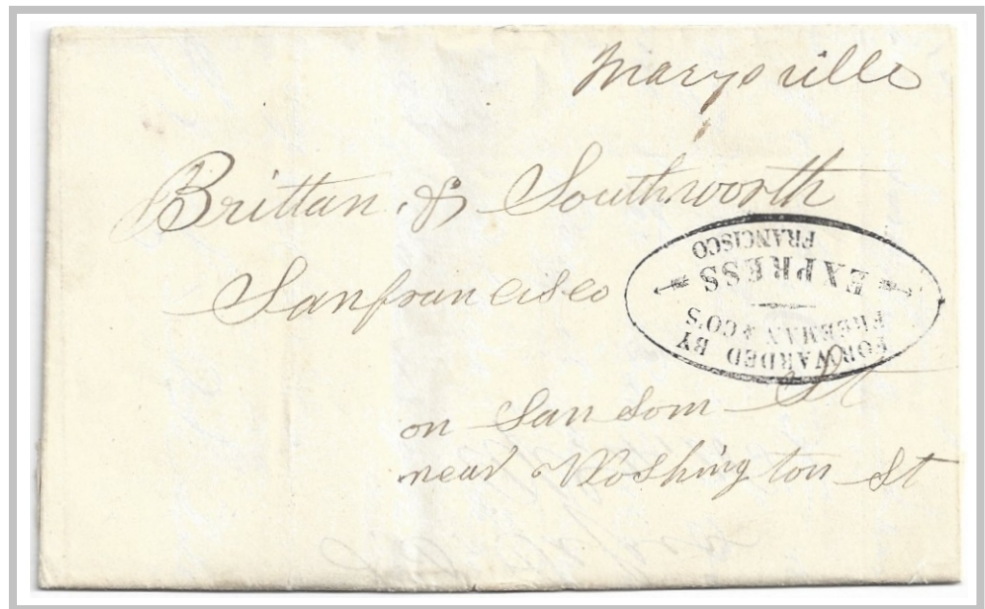 Marysville
Brittan & Southworth
Sanfrancisco
FORWARDED BY
FREEMAN & CO'S
EXPRESS
FRANCISCO
on Sansom St
near Woshington St